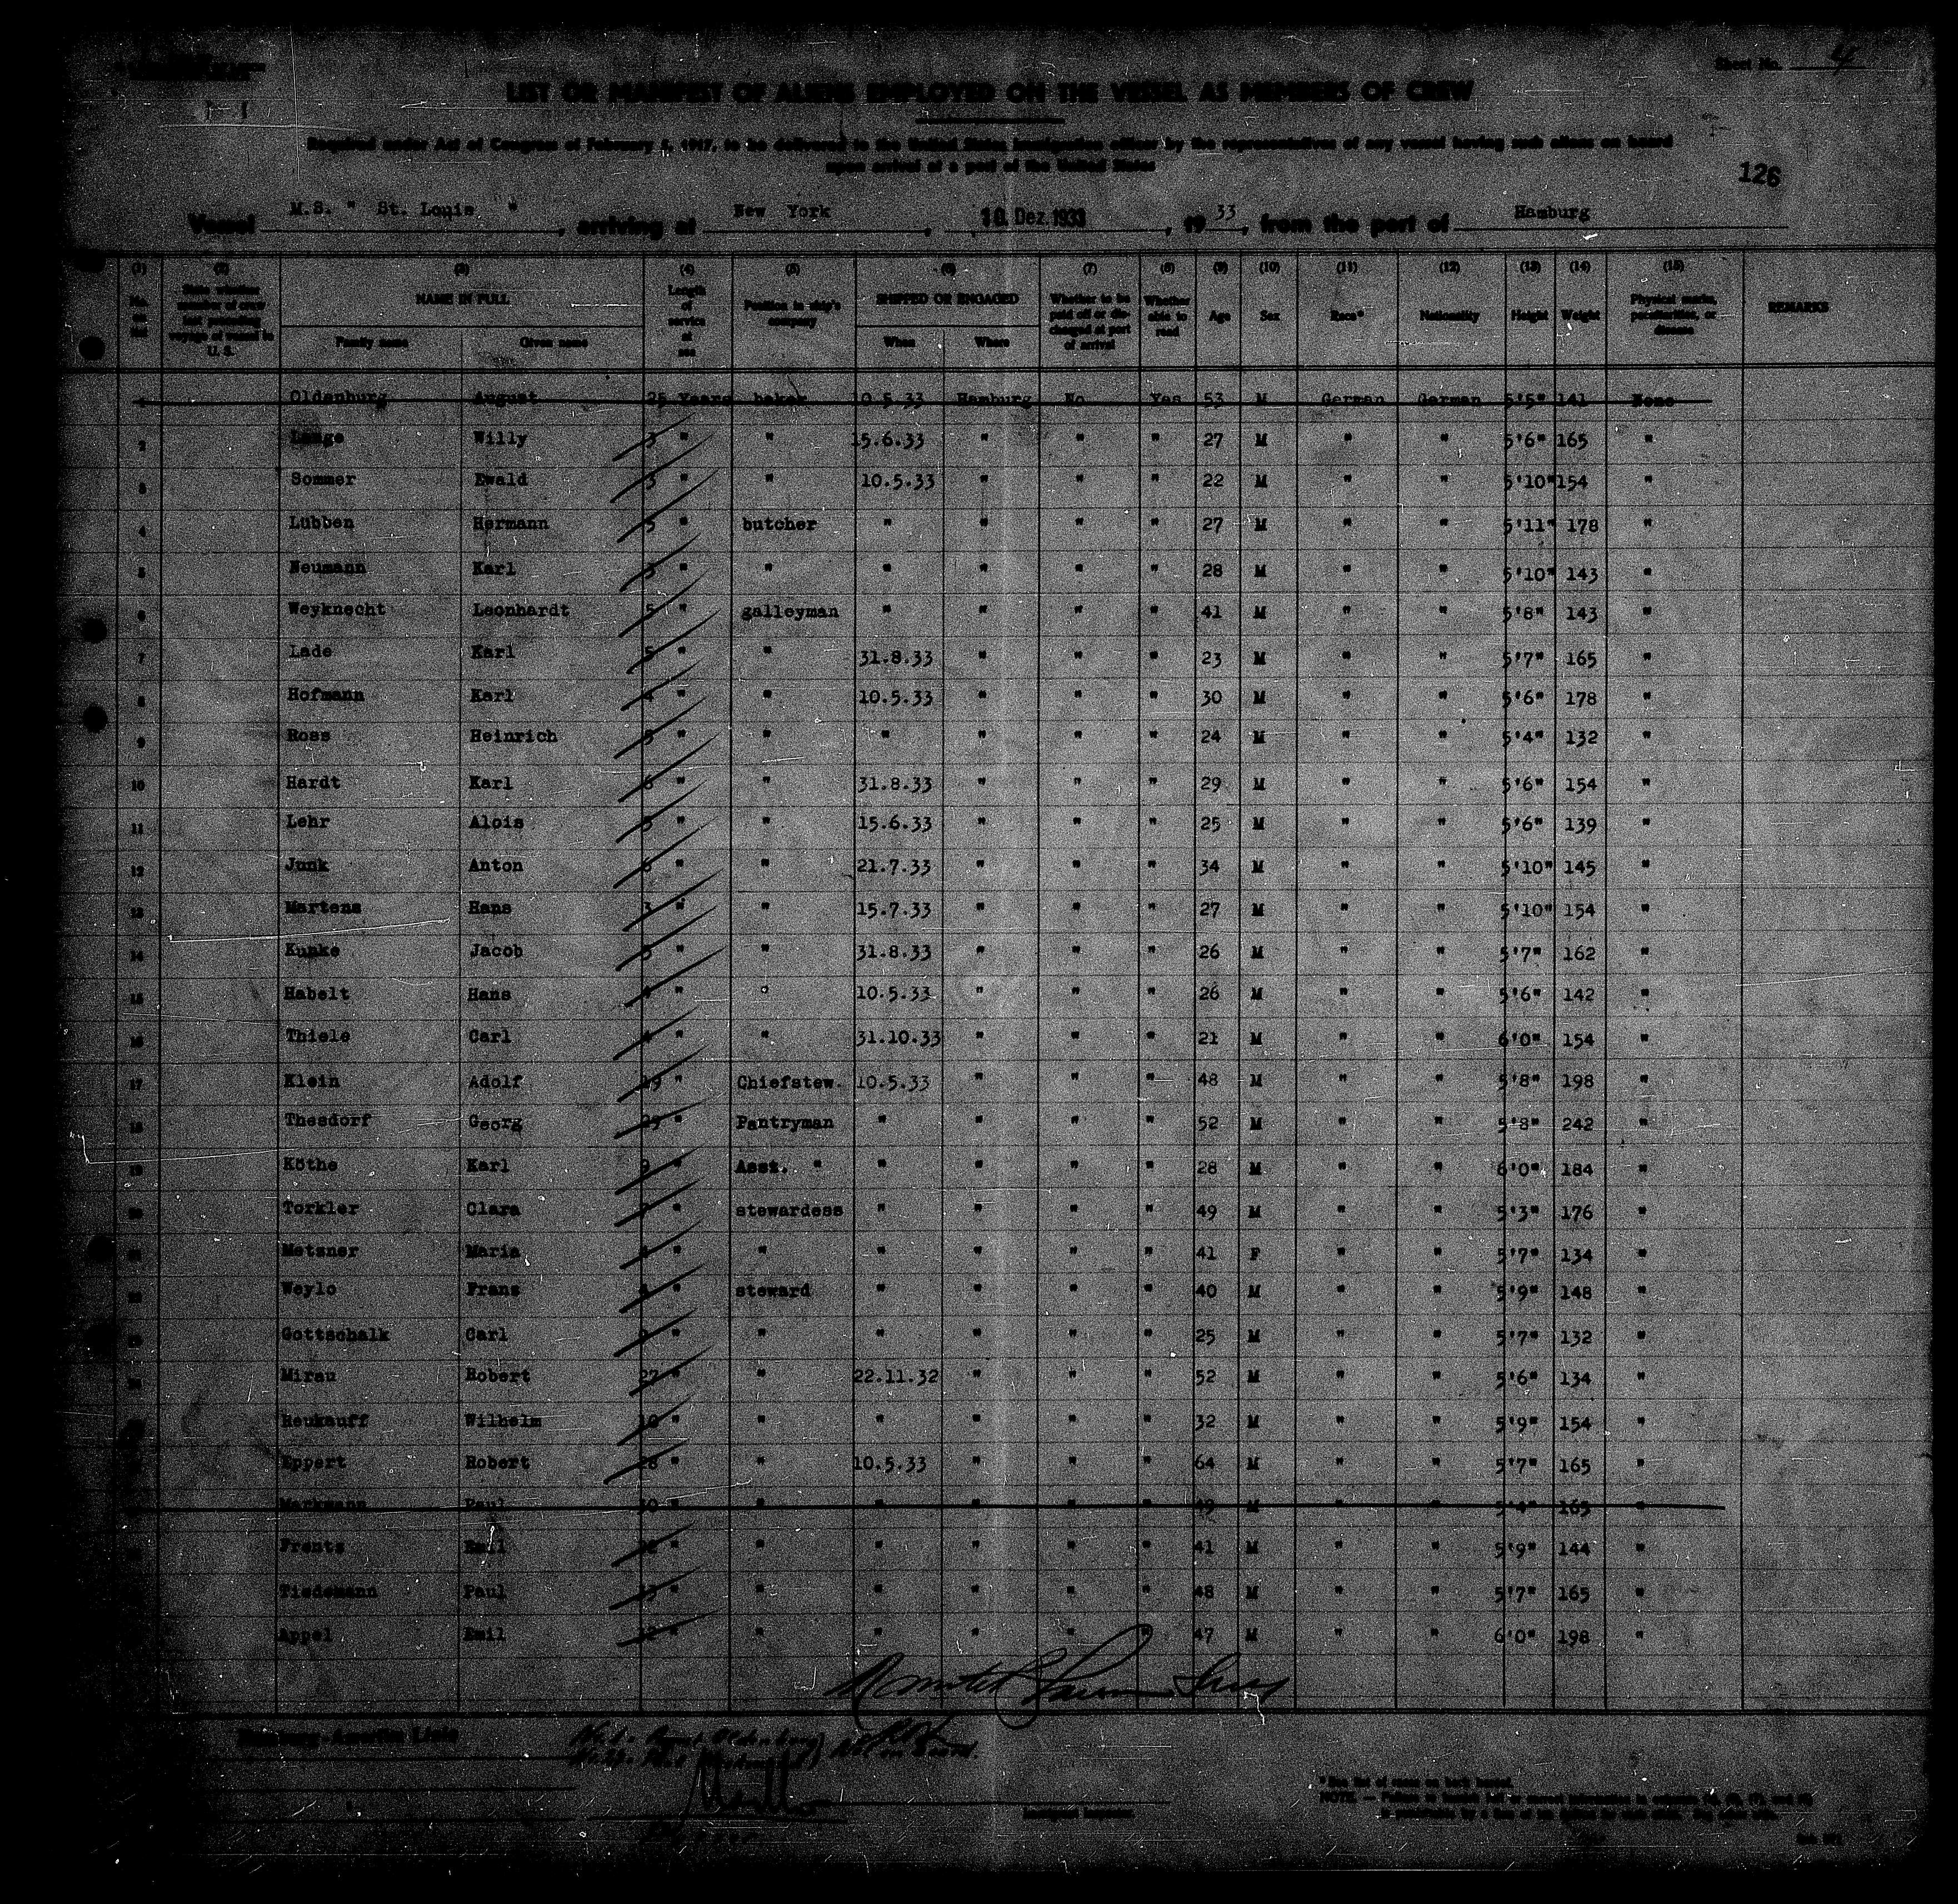 Sheet No. 4
LIST OR MANIFEST OF ALIENS EMPLOYED ON THE VESSEL AS MEMBERS OF CREW
Required under Act of Congress of February 5, 1917, to be delivered to the United States immigration officer by the representatives of any vessel having such aliens on board
upon arrival at a port of the United States
126
Vessel M.S. " St. Louis " , arriving at New York , 18. Dez. 1933 , 19 33 , from the port of Hamburg
(1) (2) (3) (4) (5) (6) (7) (8) (9) (10) (11) (12) (13) (14) (15)
No. on list State whether member of crew last preceding voyage of vessel to U. S. NAME IN FULL Length of service at sea Position in ship's company SHIPPED OR ENGAGED Whether to be paid off or discharged at port of arrival Whether able to read Age Sex Race* Nationality Height Weight Physical marks, peculiarities, or disease REMARKS
Family name Given name When Where
Oldenburg August 25 Years baker 0.5.33 Hamburg No Yes 53 M German German 5'5" 141 None
2 Lange Willy 3 " " 15.6.33 " " " 27 M " " 5'6" 165 "
3 Sommer Ewald 3 " " 10.5.33 " " " 22 M " " 5'10" 154 "
4 Lübben Hermann 5 " butcher " " " " 27 M " " 5'11" 178 "
5 Neumann Karl 3 " " " " " " 28 M " " 5'10" 143 "
6 Weyknecht Leonhardt 5 " galleyman " " " " 41 M " " 5'8" 143 "
7 Lade Karl 5 " " 31.8.33 " " " 23 M " " 5'7" 165 "
8 Hofmann Karl 4 " " 10.5.33 " " " 30 M " " 5'6" 178 "
9 Ross Heinrich 5 " " " " " " 24 M " " 5'4" 132 "
10 Hardt Karl 6 " " 31.8.33 " " " 29 M " " 5'6" 154 "
11 Lehr Alois 5 " " 15.6.33 " " " 25 M " " 5'6" 139 "
12 Junk Anton 6 " " 21.7.33 " " " 34 M " " 5'10" 145 "
13 Martens Hans 3 " " 15.7.33 " " " 27 M " " 5'10" 154 "
14 Kunke Jacob 5 " " 31.8.33 " " " 26 M " " 5'7" 162 "
15 Habelt Hans 4 " " 10.5.33 " " " 26 M " " 5'6" 142 "
16 Thiele Carl 4 " " 31.10.33 " " " 21 M " " 6'0" 154 "
17 Klein Adolf 19 " Chiefstew. 10.5.33 " " " 48 M " " 5'8" 198 "
18 Thesdorf Georg 29 " Pantryman " " " " 52 M " " 5'8" 242 "
19 Köthe Karl 9 " Asst. " " " " " 28 M " " 6'0" 184 "
20 Torkler Clara 7 " stewardess " " " " 49 M " " 5'3" 176 "
Metzner Maria 4 " " " " " " 41 F " " 5'7" 134 "
Weylo Frans " steward " " " " 40 M " " 5'9" 148 "
Gottschalk Carl " " " " " " 25 M " " 5'7" 132 "
Mirau Robert 27 " " 22.11.32 " " " 52 M " " 5'6" 134 "
Heukauff Wilhelm 10 " " " " " " 32 M " " 5'9" 154 "
Eppert Robert 28 " " 10.5.33 " " " 64 M " " 5'7" 165 "
Markmann Paul 30 " " " " " " 49 M " " 5'4" 165 "
Frents Emil " " " " " " 41 M " " 5'9" 144 "
Tiedemann Paul 13 " " " " " " 48 M " " 5'7" 165 "
Appel Emil " " " " " " 47 M " " 6'0" 198 "
Hamburg-Amerika Linie
Immigrant Inspector.
* See list of races on back hereof.